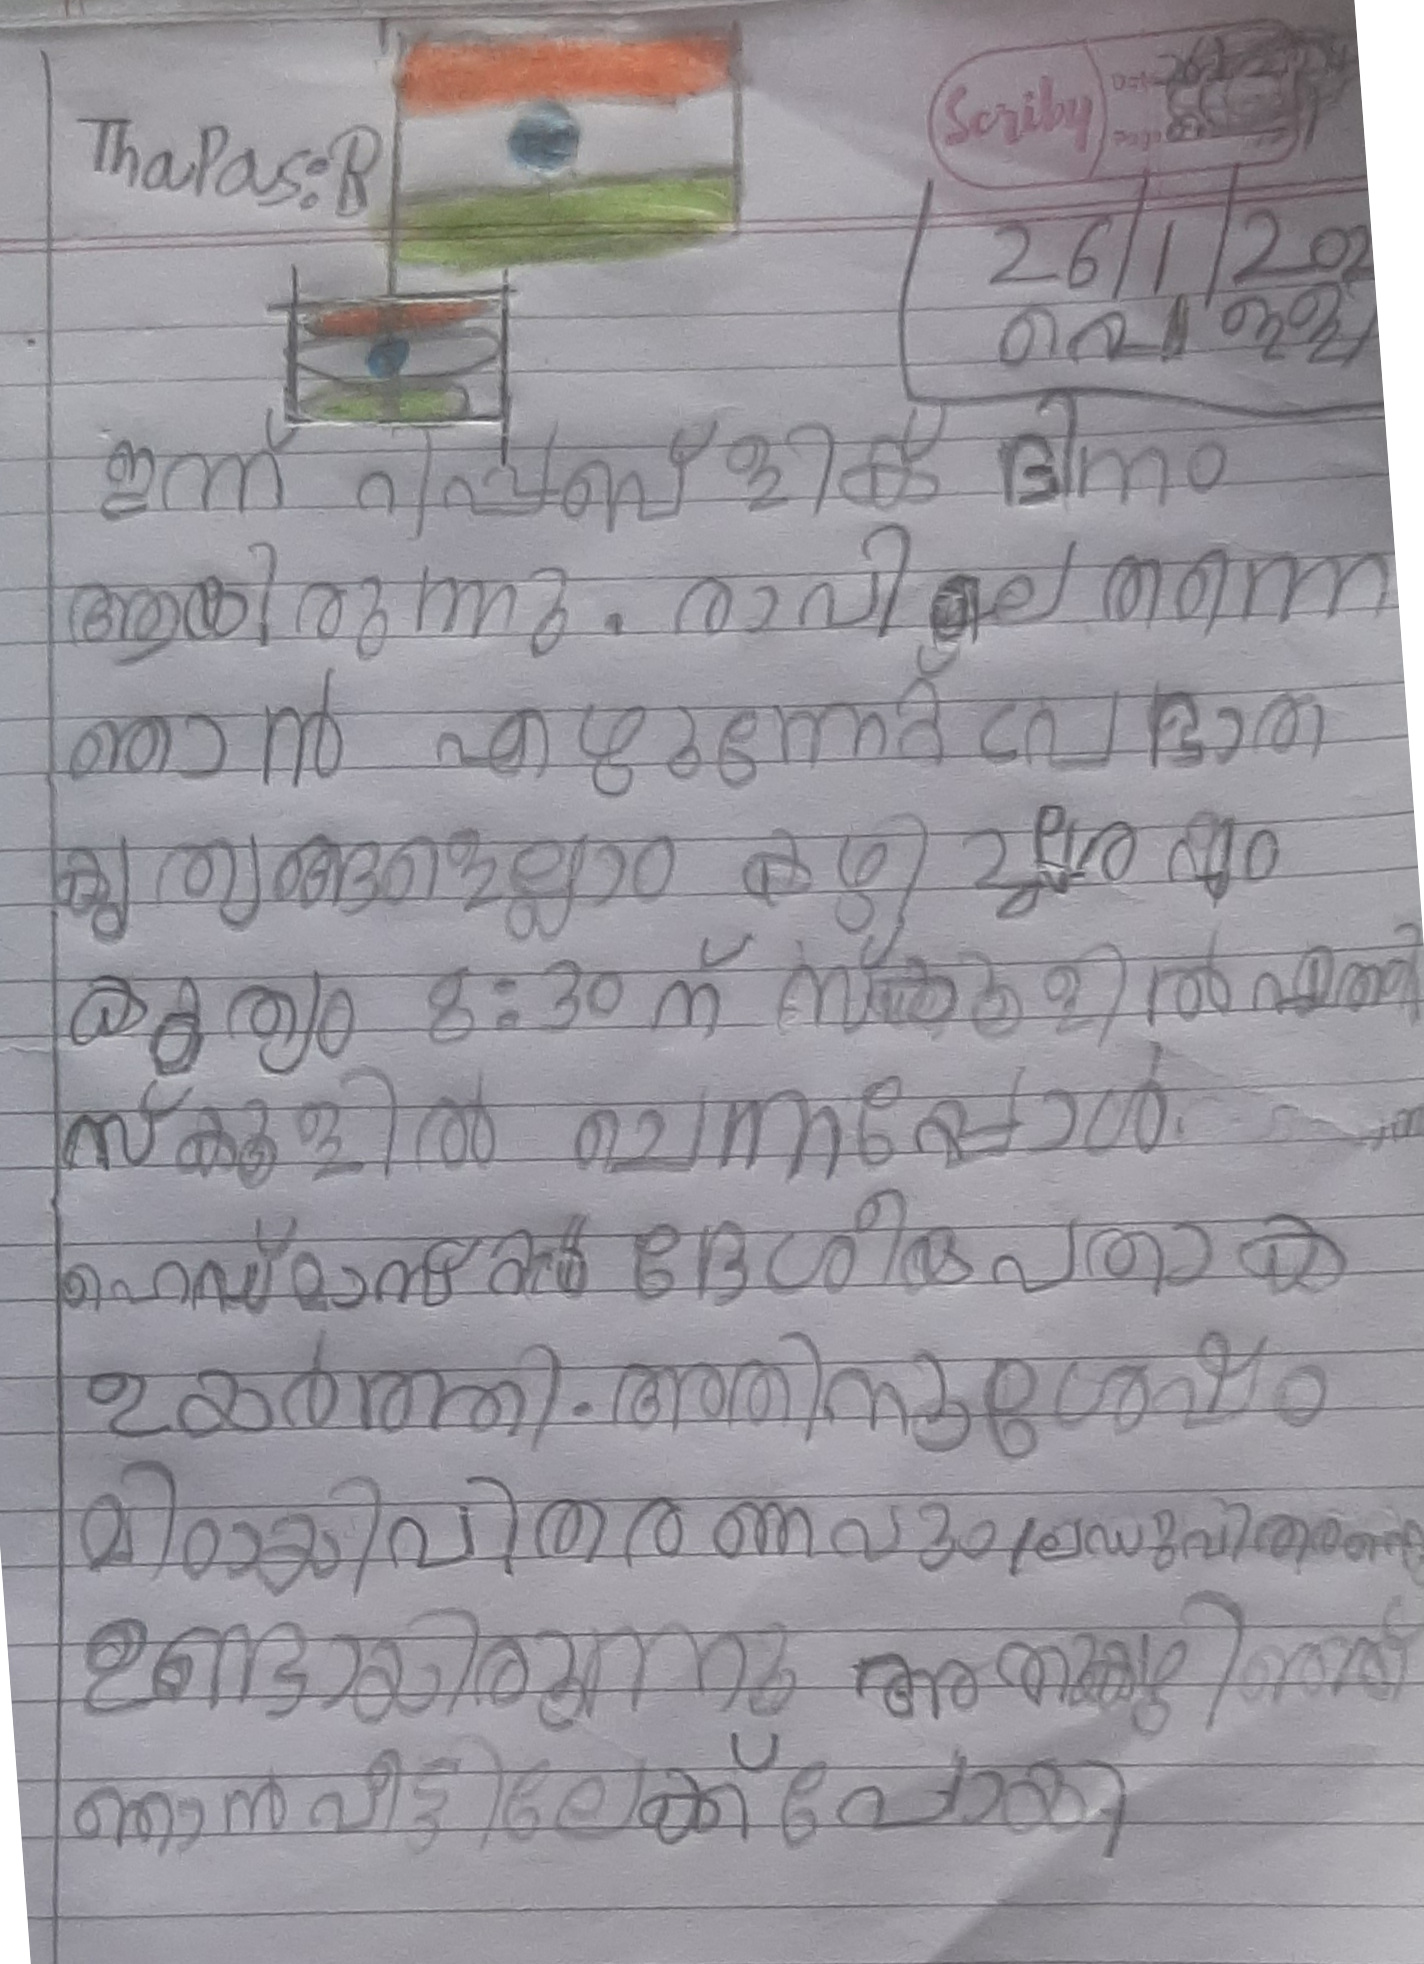 Thapas:R
Scriby
26/1/202
വെള്ളി
ഇന്ന് റിപ്പബ്ളിക്ക് ദിനം
ആയിരുന്നു. രാവിലെ തന്നെ
ഞാൻ എഴുന്നേറ്റ് പ്രഭാത
കൃത്യങ്ങളെല്ലാം കഴിച്ചശേഷം
കൃത്യം 8:30 ന് സ്കൂളിൽ എത്തി
സ്കൂളിൽ ചെന്നപ്പോൾ.
ഹെഡ്മാസ്റ്റർ ദേശീയപതാക
ഉയർത്തി. അതിനുശേഷം
മിഠായി വിതരണവും ലഡുവിതരണവും
ഉണ്ടായിരുന്നു അതുകഴിഞ്ഞ്
ഞാൻ വീട്ടിലേക്ക് പോയി